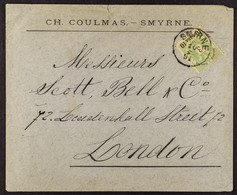 CH. COULMAS. – SMYRNE.
SMYRNE
Messieurs
Scott, Bell & Co
72. Leadenhall Street 72
London